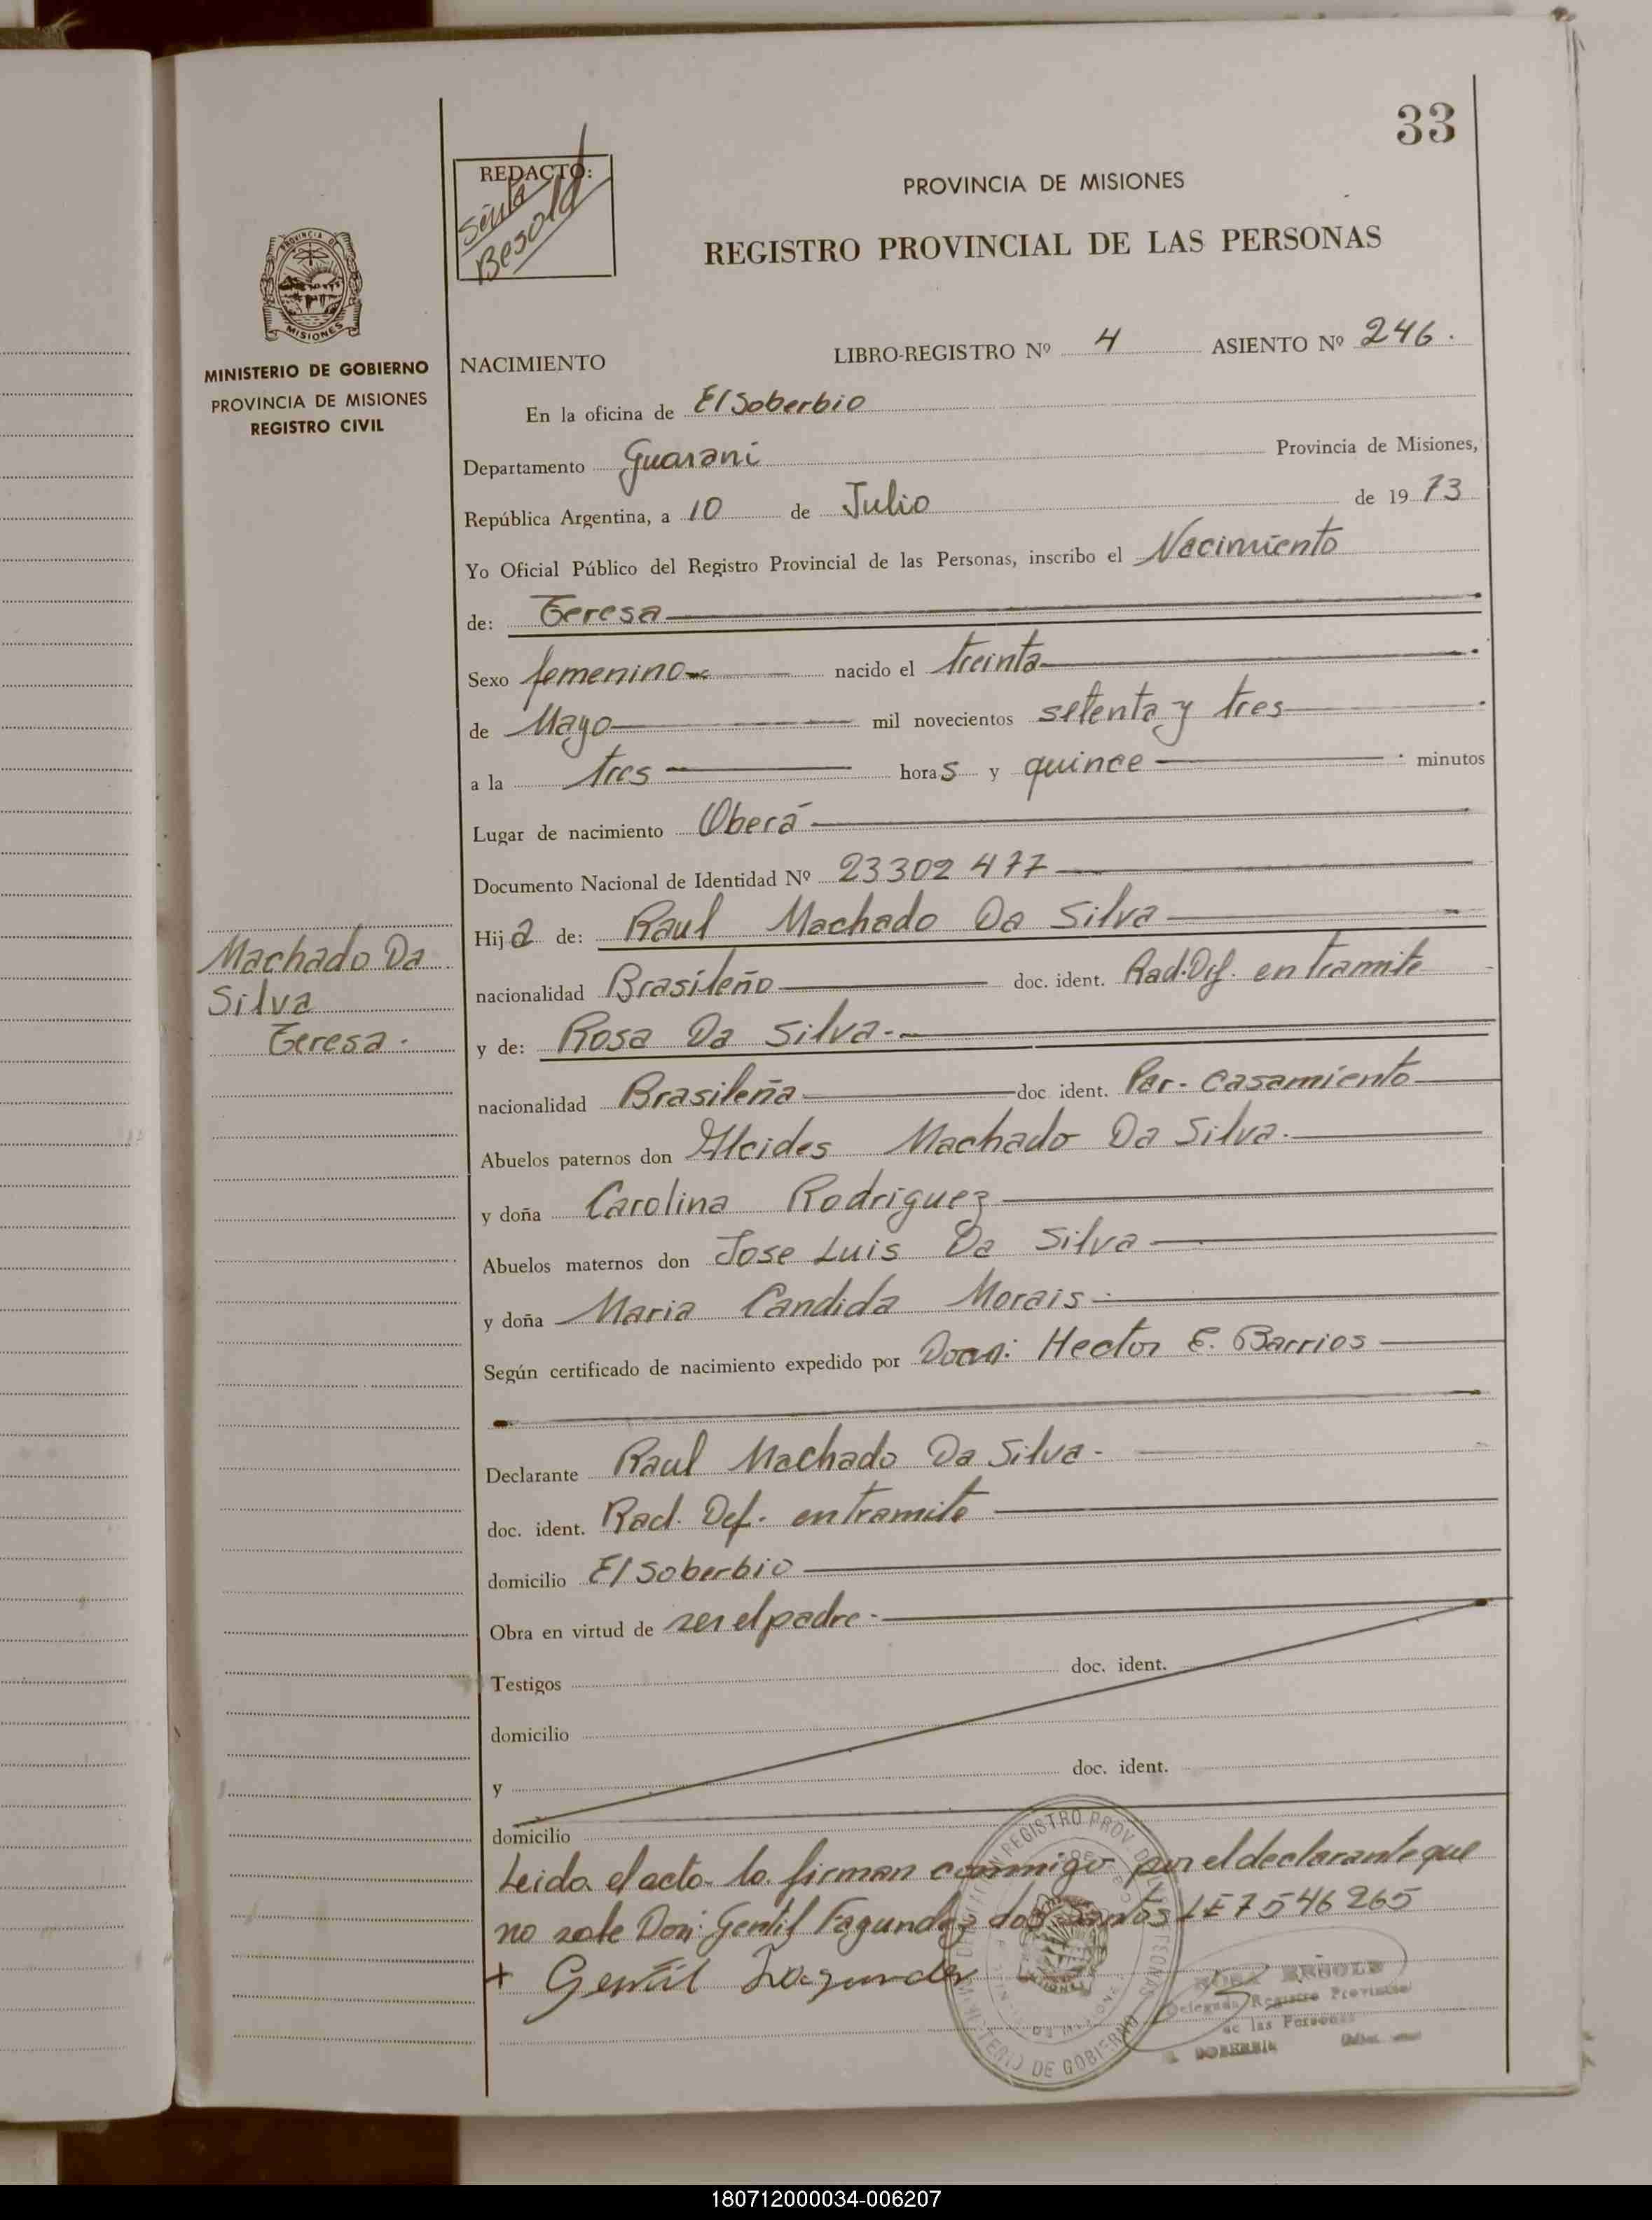 33
REDACTO:
Besold
PROVINCIA DE MISIONES
REGISTRO PROVINCIAL DE LAS PERSONAS
MISIONES
MINISTERIO DE GOBIERNO
PROVINCIA DE MISIONES
REGISTRO CIVIL
NACIMIENTO LIBRO-REGISTRO Nº 4 ASIENTO Nº 246.
En la oficina de El Soberbio
Departamento Guarani Provincia de Misiones,
República Argentina, a 10 de Julio de 1973
Yo Oficial Público del Registro Provincial de las Personas, inscribo el Nacimiento
de: Teresa
Sexo femenino nacido el treinta
de Mayo mil novecientos setenta y tres
a la tres horas y quince minutos
Lugar de nacimiento Oberá
Documento Nacional de Identidad Nº 23302477
Hija de: Raul Machado Da Silva
Machado Da
Silva
Teresa.
nacionalidad Brasileño doc. ident. Rad. Dif. en tramite
y de: Rosa Da Silva.
nacionalidad Brasileña doc ident. Par. Casamiento
Abuelos paternos don Alcides Machado Da Silva.
y doña Carolina Rodriguez
Abuelos maternos don Jose Luis Da Silva
y doña Maria Candida Morais
Según certificado de nacimiento expedido por Hector E. Barrios
Declarante Raul Machado Da Silva
doc. ident. Rad. Def. en tramite
domicilio El Soberbio
Obra en virtud de ser el padre
Testigos doc. ident.
domicilio
y doc. ident.
domicilio
Leida el acta la firman conmigo por el declarante que
no sabe Don: Gentil Fagundez dos Santos LE 7546265
+ Gentil Fagundez
REGISTRO PROV. DE LAS PERSONAS
MINISTERIO DE GOBIERNO
Delegada Registro Provincial
de las Personas
180712000034-006207